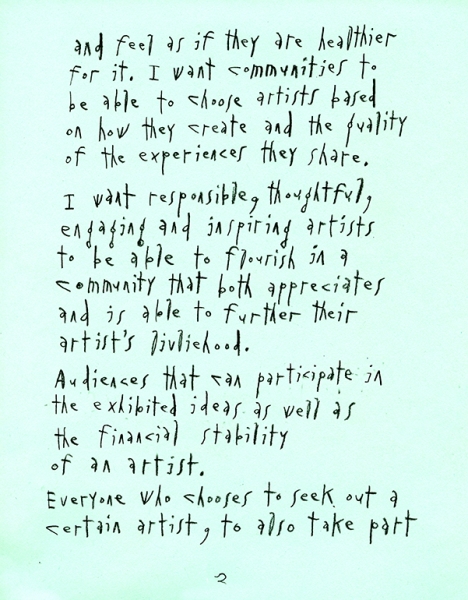 and feel as if they are healthier
for it. I want communities to
be able to choose artists based
on how they create and the quality
of the experiences they share.
I want responsible, thoughtful,
engaging and inspiring artists
to be able to flourish in a
community that both appreciates
and is able to further their
artist's livliehood.
Audiences that can participate in
the exhibited ideas as well as
the financial stability
of an artist.
Everyone who chooses to seek out a
certain artist, to also take part
2